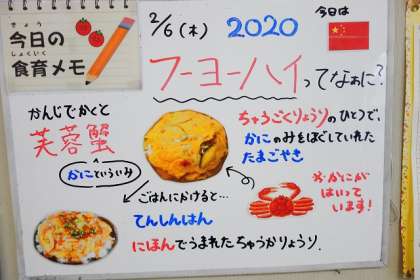 きょう
今日の
しょくいく
食育メモ
2/6(木) 2020
今日は
フーヨーハイってなぁに?
かんじでかくと
芙蓉蟹
かにといういみ
ちゅうごくりょうりのひとつで、
かにのみをほぐしていれた
たまごやき
おかにが
はいって
います!
ごはんにかけると…
てんしんはん
にほんでうまれたちゅうかりょうり.